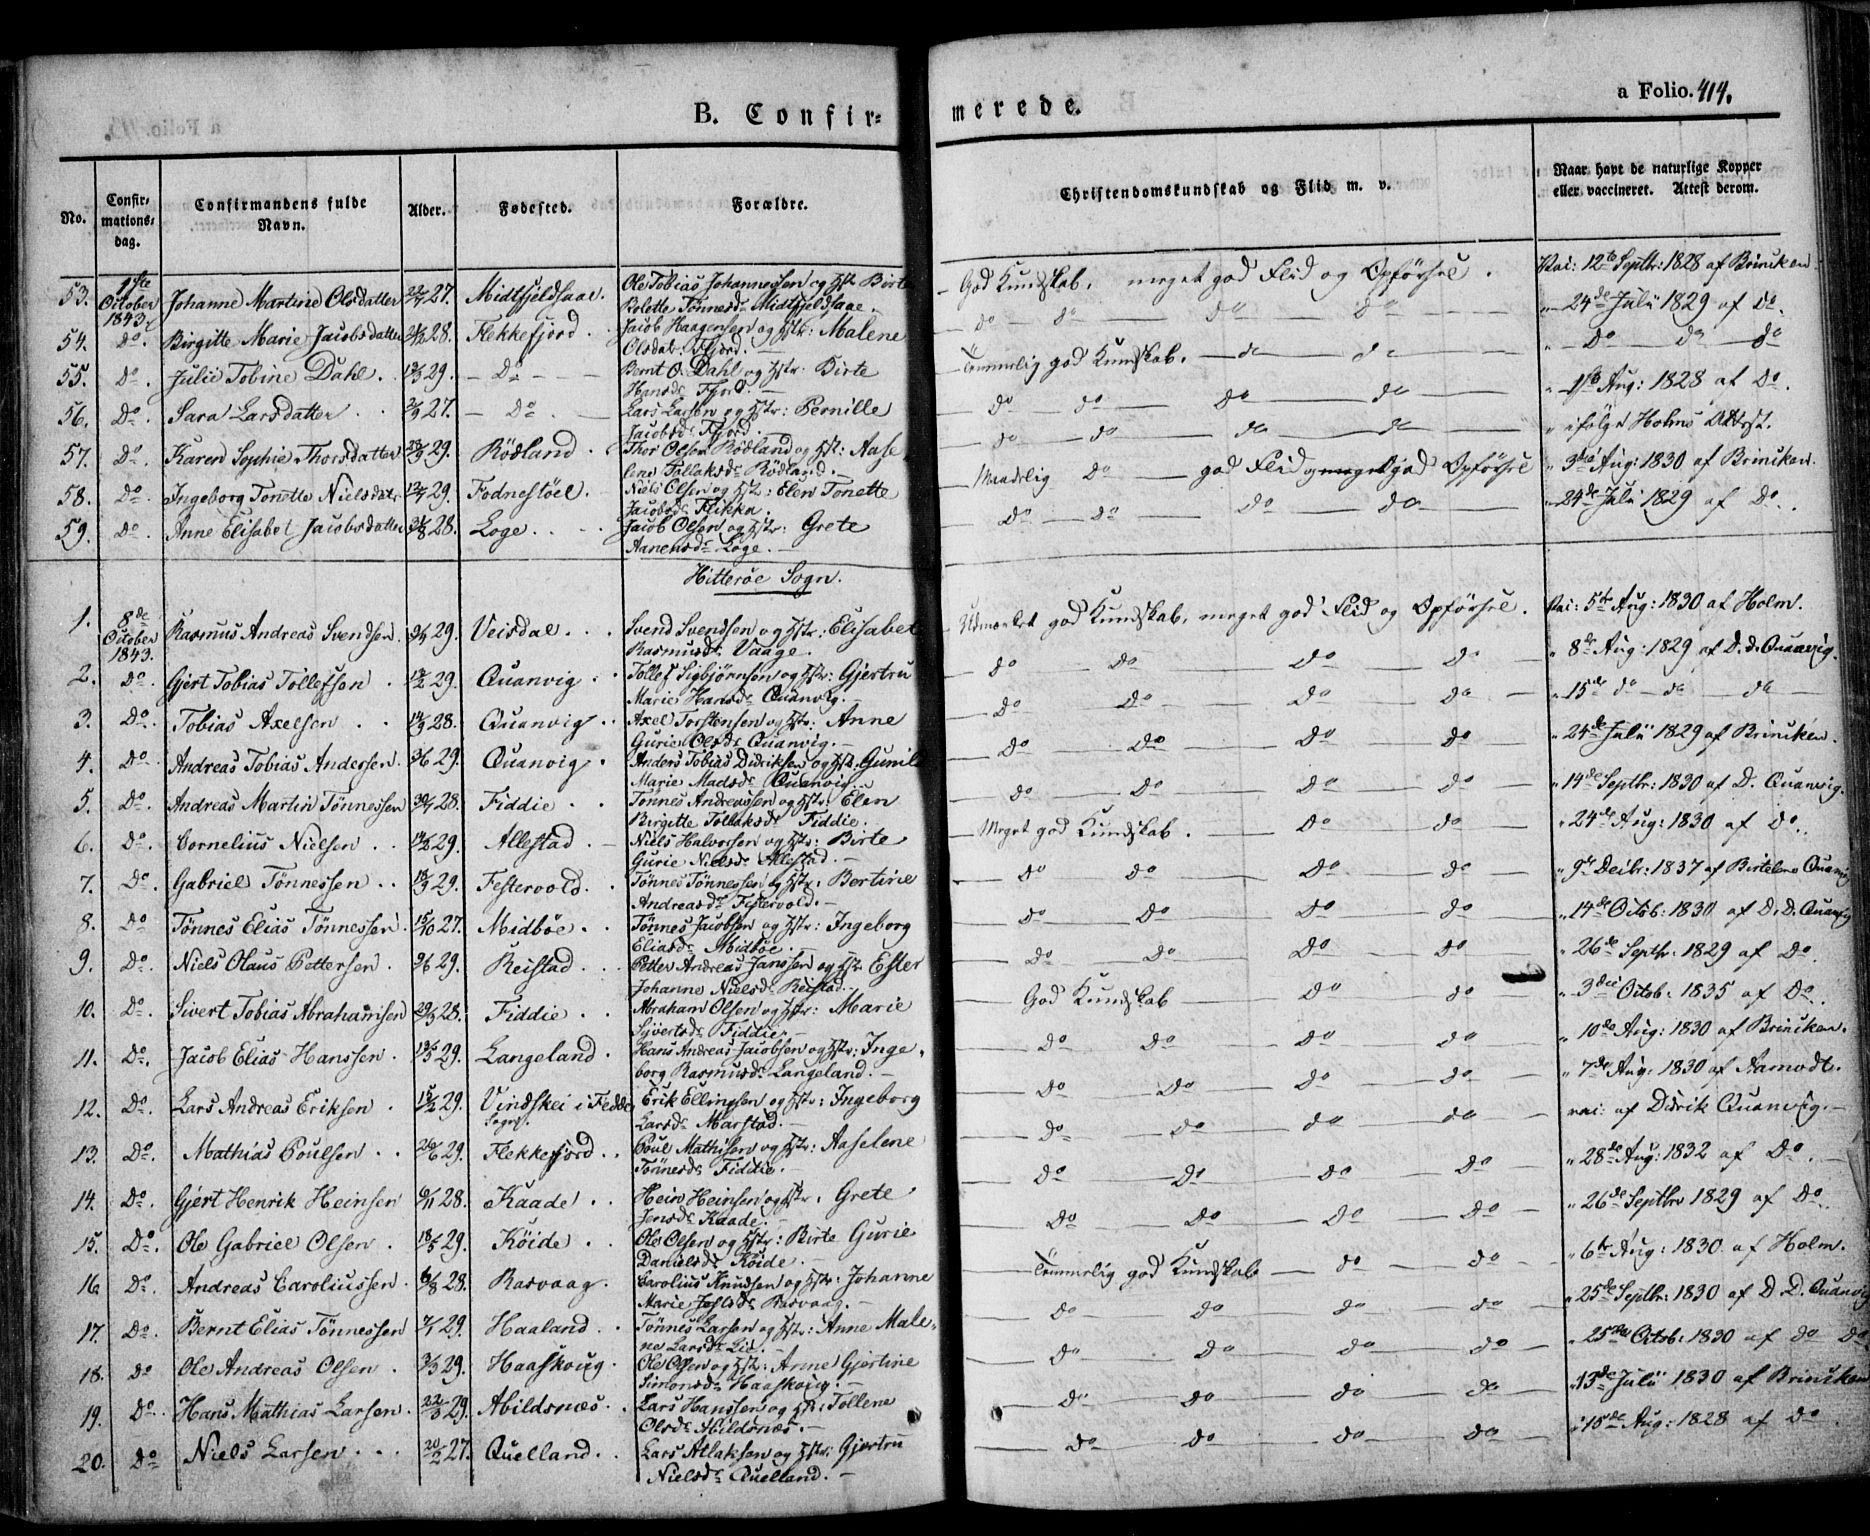 B. Confir=
merede.
a Folio. 414.
No.
Confir=
mations=
dag.
Confirmandens fulde
Navn.
Alder.
Fødested.
Forældre.
Christendomskundskab og Flid m. v.
Naar havt de naturlige Kopper
eller vaccineret. Attest derom.
53. 1ste October 1843. Johanne Martine Olsdatter 27. Midtfjeldsaae. Ole Tobias Johannessen og Hstr. Birte
Bolette Tønnesd. Midtfjeldsaae.
God Kundskab, meget god Flid og Opførsel. Vai: 12te Septbr: 1828 af Brinıken
54. Do. Birgitte Marie Jacobsdatter 28. Flekkefjord. Jacob Haagensen og Hstr: Malene
Olsdatr: Fjord.
do do do do " 24de Julii 1829 af Do.
55. Do. Julie Tobine Dahl. 29. Do Bernt O. Dahl og Hstr: Birte
Hansdr. Fjord.
Temmelig god Kundskab. do do " Do do do
56. Do. Sara Larsdatter 27. Do. Lars Larsen og Hstr: Pernille
Jacobsdr. Fjord.
do do do do " 1ste Aug: 1828 af Do.
57. Do. Karen Sophie Thorsdatter 29. Rødland. Thor Olsen Rødland og Hstr: Aase
lene Tollaksdr. Rødland.
do do do do " ifølge Holms Attest.
58. Do. Ingeborg Tonette Nielsdatr 29. Fodnestöel. Niels Olsen og Hstr: Elen Tonette
Jacobsdr. Flikka.
Maadelig Do god Flid og meget god Opførsel " 3die Aug: 1830 af Brinıken.
59. Do. Anne Elisabet Jacobsdatter 28. Loge. Jacob Olsen og Hstr: Grete
Aanensdr. Loge.
Do do do do " 24de Julii 1829 af Do.
Hitterøe Sogn.
1. 8de October 1843. Rasmus Andreas Svendsen. 29. Veisdal. Svend Svendsen og Hstr: Elisabet
Rasmusdr. Vaage.
Udmærket god Kundskab, meget god Flid og Opførsel. Vai: 5te Aug: 1830 af Holm.
2. Do. Gjert Tobias Tollefsen. 29. Quanvig. Tollef Sigbjørnsen og Hstr: Gjertru
Marie Hansdr. Quanvig.
do Do Do do " 8de Aug: 1829 af D. d. Quanvig.
3. Do. Tobias Axelsen. 28. Quanvig. Axel Torstensen og Hstr: Anne
Gurie Olsdr. Quanvig.
do Do do do " 15de do do do
4. Do. Andreas Tobias Andersen. 29. Quanvig. Anders Tobias Didriksen og Hstr. Gunild
Marie Madsdr. Quanvig.
do Do do do " 24de Julii 1829 af Brinıken.
5. Do. Andreas Martin Tønnessen 28. Fiddie. Tønnes Andreassen og Hstr: Elen
Birgitte Tollaksdr. Fiddie.
do Do do do " 14de Septbr: 1830 af D. Quanvig.
6. Do. Cornelius Nielsen. 29. Allestad. Niels Halvorsen og Hstr: Birte
Gurie Nielsdr. Allestad.
Meget god Kundskab. Do do " 24de Aug: 1830 af Do.
7. Do. Gabriel Tønnessen. 29. Festervold. Tønnes Tønnessen og Hstr: Bertine
Andreasdr. Festervold.
do Do Do do " 9de Decbr: 1837 af Quanvig
8. Do. Tønnes Elias Tønnessen. 15/10 27. Midbøe. Tønnes Jacobsen og Hstr: Ingeborg
Eliasdr. Midbøe.
do Do do do " 14de Octob: 1830 af D. D. Quanvig
9. Do. Niels Olaus Pettersen. 29. Reistad. Petter Andreas Janssen og Hstr Ester
Johanne Nielsdr. Reistad.
do Do Do do " 26de Septbr: 1829 af Do.
10. Do. Sivert Tobias Abrahamsen 28. Fiddie. Abraham Olsen og Hstr: Marie
Syvertsdr. Fiddie.
God Kundskab Do do " 3die Octob: 1835 af Do.
11. Do. Jacob Elias Hanssen. 29. Langeland. Hans Andreas Jacobsen og Hstr: Inge=
borg Rasmusdr. Langeland.
do Do do do " 10de Aug: 1830 af Brinıken.
12. Do. Lars Andreas Eriksen. 29. Vindskei i Fedde
Sogn. Erik Ellingsen og Hstr: Ingeborg
Larsdr. Marstad.
do do do do " 7de Aug: 1830 af Aamodt.
13. Do. Mathias Poulsen. 29. Flekkefjord. Poul Mathisen og Hstr: Aaselene
Tönnesdr. Fiddie.
do do do do vai: af Didrik Quanvig.
14. Do. Gjert Henrik Heinsen 28. Kaade. Hein Heinsen og Hstr: Grete
Jensdr. Kaade.
do do do do " 28de Aug: 1832 af Do.
15. Do. Ole Gabriel Olsen. 18/5 29. Köide. Ole Olsen og Hstr: Birte Gurie
Danielsdr. Köide.
do do do do " 26de Septbr 1829 af Do
16. Do. Andreas Caroliussen. 28. Rasvaag. Carolius Knudsen og Hstr: Johanne
Marie Rasvaag.
Temmelig god Kundskab do do " 6te Aug: 1830. af Holm.
17. Do. Bernt Elias Tønnessen 29. Haaland. Tønnes Larsen og Hstr: Anne Male=
ne Larsdr. Lie.
do do do do " 25de Septbr: 1830 af D. D. Quanvig
18. do Ole Andreas Olsen. 29. Haaskoug. Ole Olsen og Hstr: Anne Gjertine
Simonsdr. Haaskoug.
do do do do " 25de Octob: 1830 af do Do
19. Do. Hans Mathias Larsen. 22/3 29. Abildsnæs. Lars Hanssen og Hstr: Tollene
Olsdr. Abildsnæs.
do do do do " 13de Julii 1830 af Brinıken
20. Do Niels Larsen. 20/2 27. Quelland. Lars Atlaksen og Hstr: Gjertru
Nielsdr. Quelland.
do do do do " 15de Aug: 1828 af do.